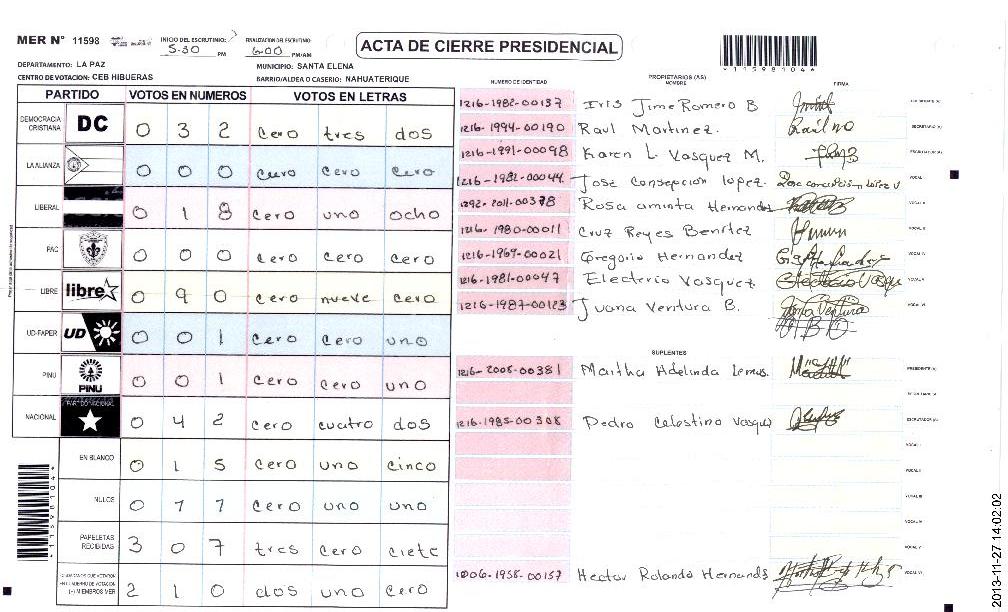 MER N° 11598
INICIO DEL ESCRUTINIO: 5:30 PM
FINALIZACION DEL ESCRUTINIO: 6:00 PM/AM
ACTA DE CIERRE PRESIDENCIAL
*11598104*
DEPARTAMENTO: LA PAZ
MUNICIPIO: SANTA ELENA
CENTRO DE VOTACION: CEB HIBUERAS
BARRIO/ALDEA O CASERIO: NAHUATERIQUE
PARTIDO VOTOS EN NUMEROS VOTOS EN LETRAS
DEMOCRACIA CRISTIANA DC 0 3 2 cero tres dos
LA ALIANZA 0 0 0 cero cero cero
LIBERAL 0 1 8 cero uno ocho
PAC 0 0 0 cero cero cero
LIBRE libre 0 9 0 cero nueve cero
UD-FAPER UD 0 0 1 cero cero uno
PINU PINU 0 0 1 cero cero uno
NACIONAL PARTIDO NACIONAL 0 4 2 cero cuatro dos
EN BLANCO 0 1 5 cero uno cinco
NULOS 0 1 1 cero uno uno
PAPELETAS RECIBIDAS 3 0 7 tres cero ciete
CIUDADANOS QUE VOTARON EN CUADERNO DE VOTACION (+) MIEMBROS MER 2 1 0 dos uno cero
NUMERO DE IDENTIDAD
PROPIETARIOS (AS)
NOMBRE
FIRMA
1216-1982-00137 Iris Jime Romero B
1216-1994-00190 Raul Martinez. SECRETARIO (A)
1216-1991-00098 Karen L. Vasquez M. ESCRUTADOR (A)
1216-1982-00044 Jose Consepcion lopez. VOCAL I
1292-2011-00378 Rosa aminta Hernandez VOCAL II
1216-1980-00011 Cruz Reyes Benitez VOCAL III
1216-1969-00021 Gregorio Hernandez VOCAL IV
1216-1981-00047 Electerio Vasquez VOCAL V
1216-1987-00123 Juana Ventura B. VOCAL VI
SUPLENTES
1216-2008-00381 Martha Adelinda Lemus. PRESIDENTE (A)
SECRETARIO (A)
1216-1985-00308 Pedro Celestino Vasquez ESCRUTADOR (A)
VOCAL I
VOCAL II
VOCAL III
VOCAL IV
VOCAL V
1006-1958-00157 Hector Rolando Hernandz VOCAL VI
*11598104*
2013-11-27 14:02:02